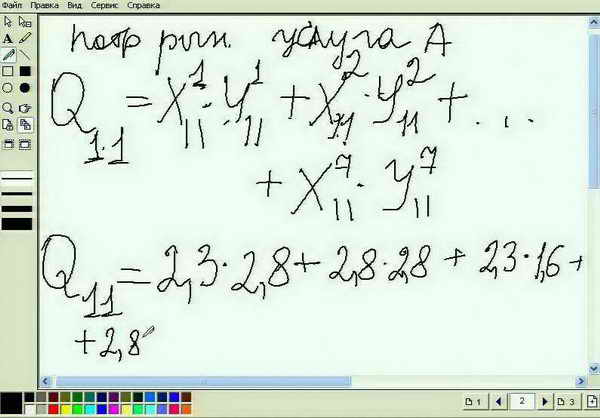 Файл Правка Вид Сервис Справка
потр рын. услуга А
Q₁₁ = X¹₁₁ · Y¹₁₁ + X²₁₁ · Y²₁₁ + ...
+ X⁷₁₁ · Y⁷₁₁
Q₁₁ = 2,3 · 2,8 + 2,8 · 2,8 + 2,3 · 1,6 +
+ 2,8
1 2 3